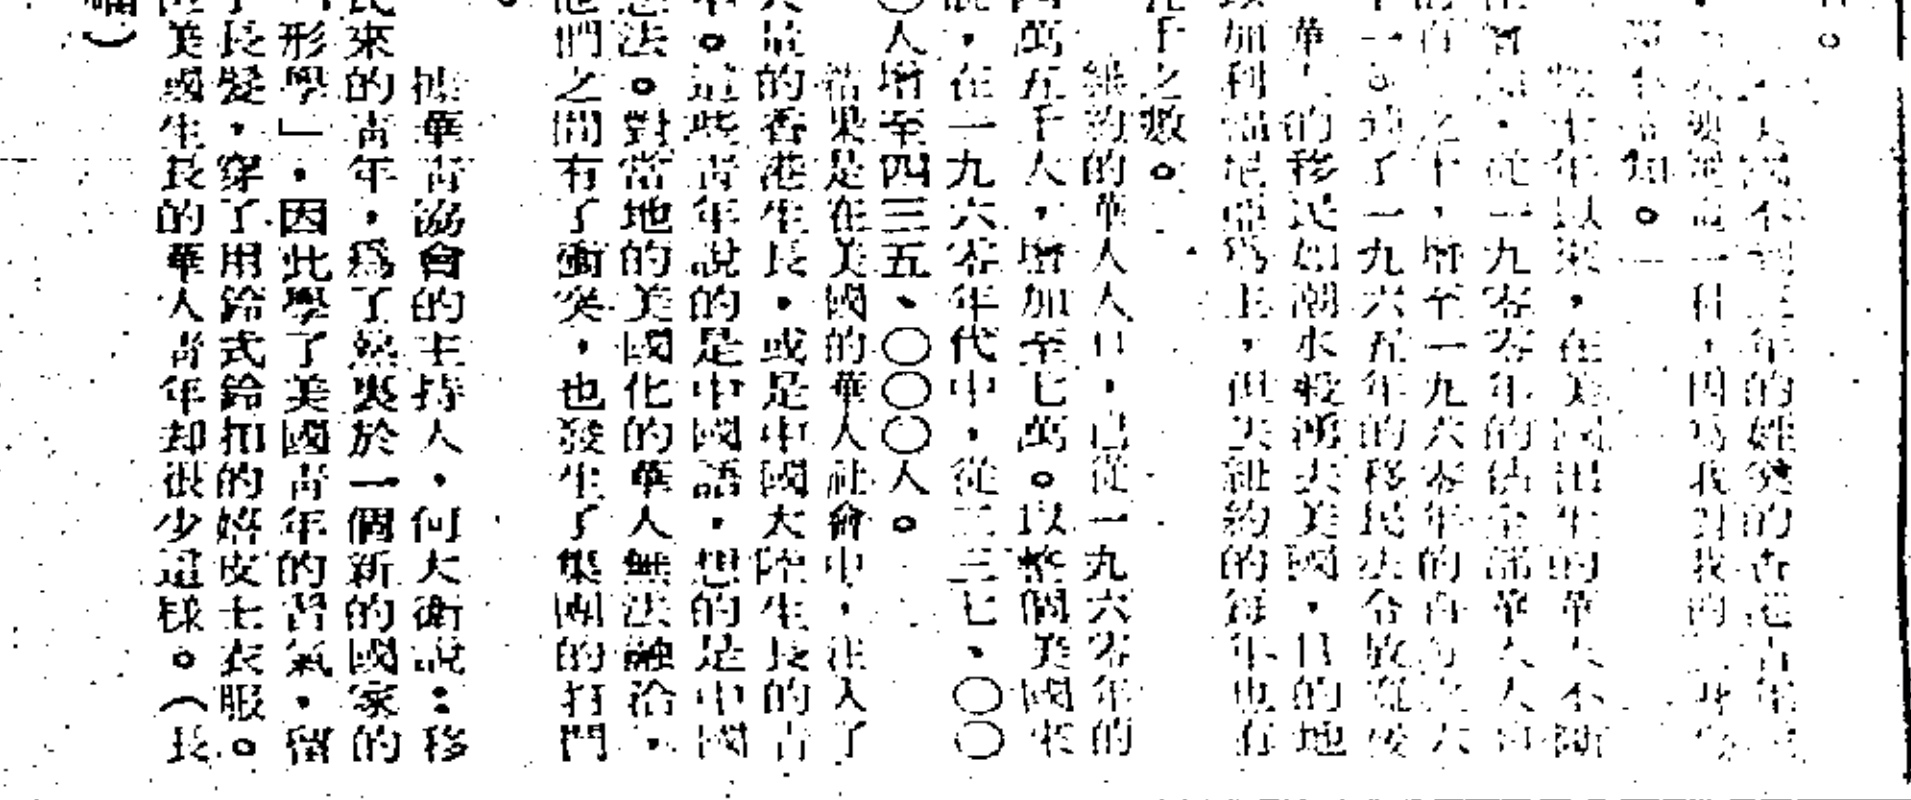 。
不到三年的姓樊的香港青年
一科,因爲我對我的
知。」
數十年以來,在美國出生的華人不斷
在增加,從一九零零年的佔全部華人人口
的百分之十,增至一九六零年的百分之六
十一。到了一九六五年的移民法令放寬後
華人的移民如潮水般湧去美國,目的地
以加利福尼亞爲主,但去紐約的每年也有
千之數。
紐約的華人人口,已從一九六零年的
四萬五千人,增加至七萬。以整個美國來
說,在一九六零年代中,從二三七、〇〇
〇人增至四三五、〇〇〇人。
結果是在美國的華人社會中,注入了
大量的香港生長,或是中國大陸生長的青
年。這些青年說的是中國語,想的是中國
想法。對當地的美國化的華人無法融洽,
他們之間有了衝突,也發生了集團的打鬥
。
據華青協會的主持人,何大衛說:移
民來的青年,爲了熱衷於一個新的國家的
「形學」,因此學了美國青年的習氣,留
了長髮,穿了用鈴式鈴扣的嬉皮士衣服。
在美國生長的華人青年却很少這樣。(長
)